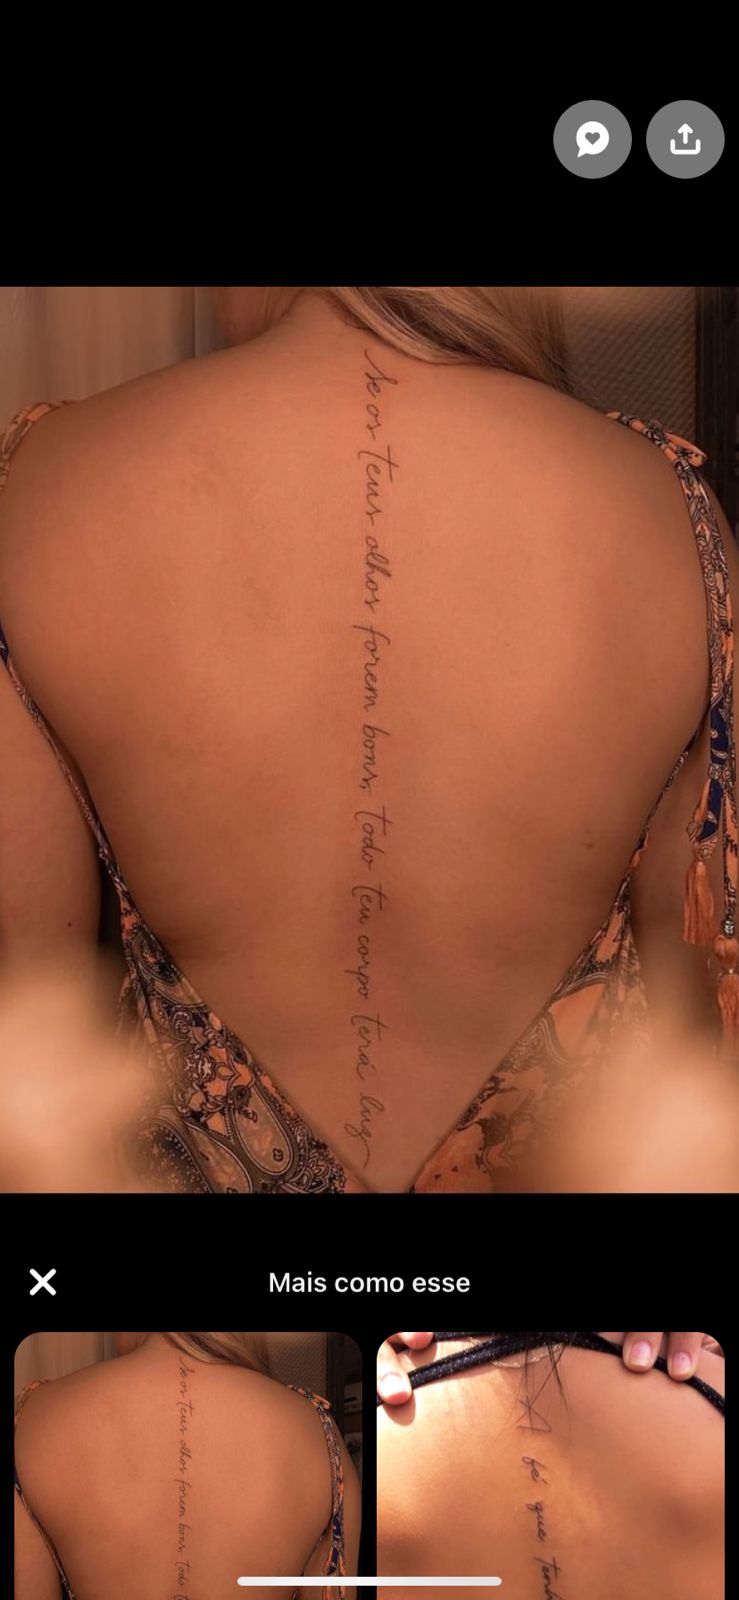 se os teus olhos forem bons, todo teu corpo terá luz
Mais como esse
se os teus olhos forem bons, todo
A fé que